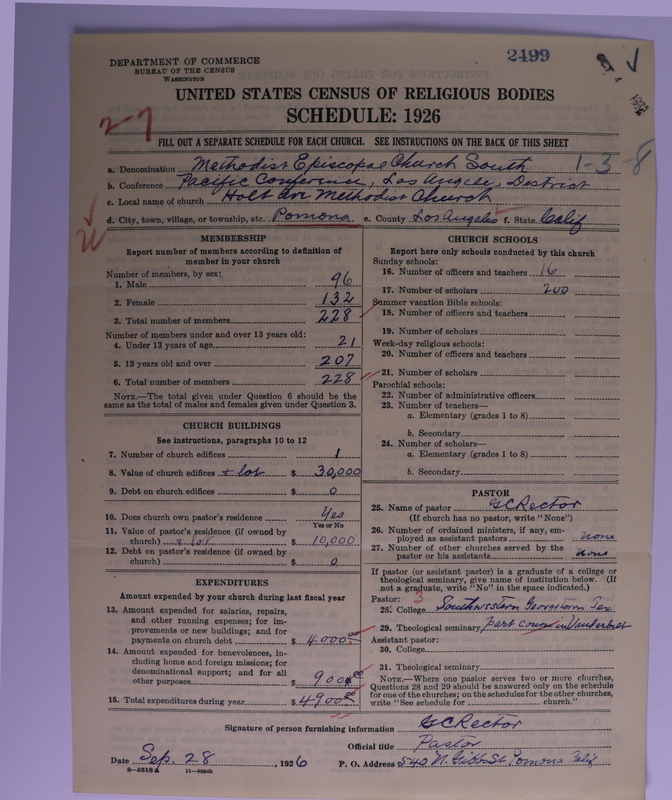 DEPARTMENT OF COMMERCE
BUREAU OF THE CENSUS
WASHINGTON
2499
UNITED STATES CENSUS OF RELIGIOUS BODIES
SCHEDULE: 1926
2-7
FILL OUT A SEPARATE SCHEDULE FOR EACH CHURCH. SEE INSTRUCTIONS ON THE BACK OF THIS SHEET
a. Denomination Methodist Episcopal Church South 1-3-8
b. Conference Pacific Conference, Los Angeles, District
c. Local name of church Holt Ave Methodist Church
d. City, town, village, or township, etc. Pomona e. County Los Angeles f. State Calif
MEMBERSHIP
Report number of members according to definition of member in your church
Number of members, by sex:
1. Male 96
2. Female 132
3. Total number of members 228
Number of members under and over 13 years old:
4. Under 13 years of age 21
5. 13 years old and over 207
6. Total number of members 228
NOTE.—The total given under Question 6 should be
same as the total of males and females given under Question 3.
CHURCH BUILDINGS
See instructions, paragraphs 10 to 12
7. Number of church edifices 1
8. Value of church edifices + lot $ 30,000
9. Debt on church edifices $ 0
10. Does church own pastor's residence Yes
Yes or No
11. Value of pastor's residence (if owned by
church) + lot $ 10,000
12. Debt on pastor's residence (if owned by
church) $ 0
EXPENDITURES
Amount expended by your church during last fiscal year
13. Amount expended for salaries, repairs,
and other running expenses; for im-
provements or new buildings; and for
payments on church debt $ 4000.00
14. Amount expended for benevolences, in-
cluding home and foreign missions; for
denominational support; and for all
other purposes $ 900.00
15. Total expenditures during year $ 4900.00
CHURCH SCHOOLS
Report here only schools conducted by this church
Sunday schools:
16. Number of officers and teachers 16
17. Number of scholars 200
Summer vacation Bible schools:
18. Number of officers and teachers
19. Number of scholars
Week-day religious schools:
20. Number of officers and teachers
21. Number of scholars
Parochial schools:
22. Number of administrative officers
23. Number of teachers—
a. Elementary (grades 1 to 8)
b. Secondary
24. Number of scholars—
a. Elementary (grades 1 to 8)
b. Secondary
PASTOR
25. Name of pastor G C Rector
(If church has no pastor, write "None")
26. Number of ordained ministers, if any, em-
ployed as assistant pastors none
27. Number of other churches served by the
pastor or his assistants none
If pastor (or assistant pastor) is a graduate of a college or
theological seminary, give name of institution below. (If
not a graduate, write "No" in the space indicated.)
Pastor: 3
28. College Southwestern Georgetown Tex
29. Theological seminary Part course in Vanderbilt
Assistant pastor:
30. College
31. Theological seminary
NOTE.—Where one pastor serves two or more churches,
Questions 28 and 29 should be answered only on the schedule
for one of the churches; on the schedules for the other churches,
write "See schedule for church."
Signature of person furnishing information G C Rector
Official title Pastor
Date Sep. 28, 1926 P. O. Address 540 N. Gibbs St Pomona Calif
8—5518a 11—9064b